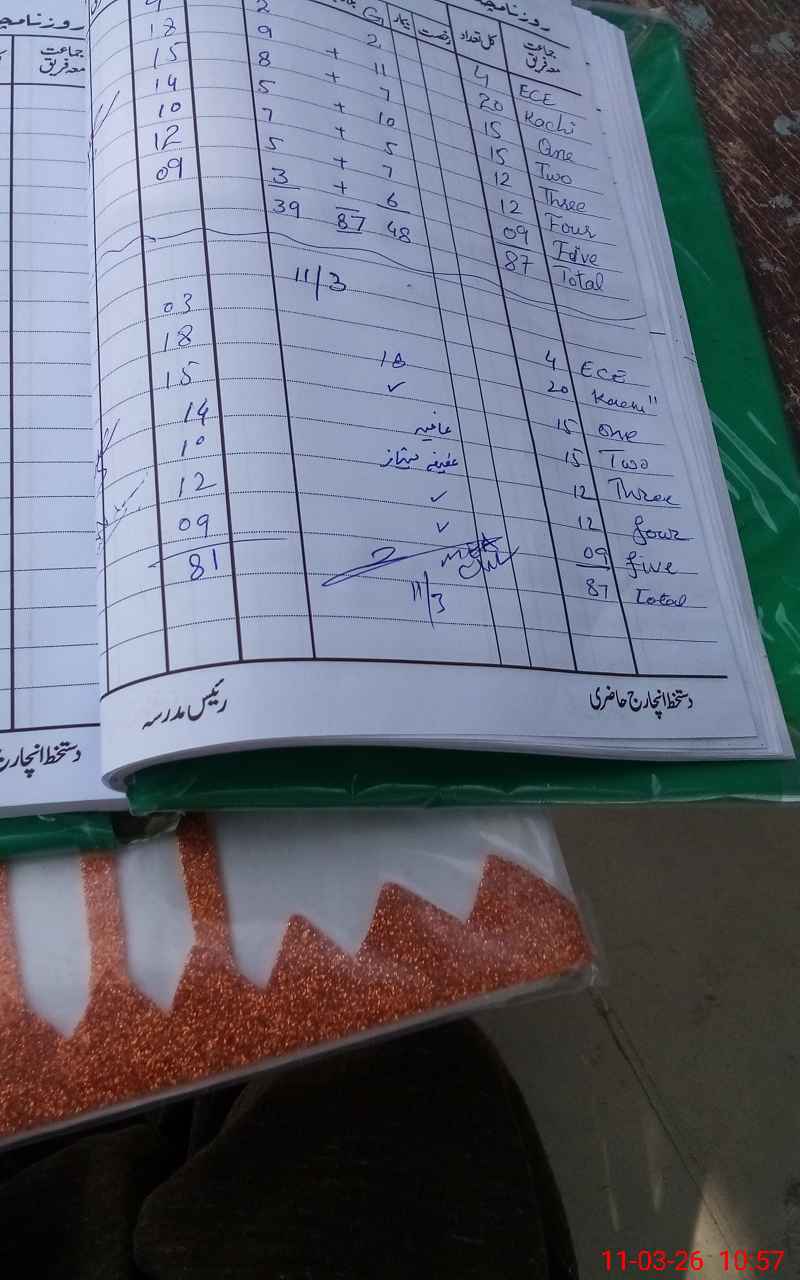 روزنامچہ
جماعت معہ فریق کل تعداد رخصت بیمار
ECE 4 2 2 4
Kachi 20 11 + 9 18
One 15 7 + 8 15
Two 15 10 + 5 14
Three 12 5 + 7 10
Four 12 7 + 5 12
Five 09 6 + 3 09
Total 87 48 87 39
11/3
ECE 4 03
Kachi" 20 18 18
One 15 ✓ 15
Two 15 عافیہ 14
Three 12 10
four 12 ✓ 12
five 09 ✓ 09
Total 87 81
11/3
دستخط انچارج حاضری رئیس مدرسہ
جماعت معہ فریق
دستخط انچارج
11-03-26 10:57